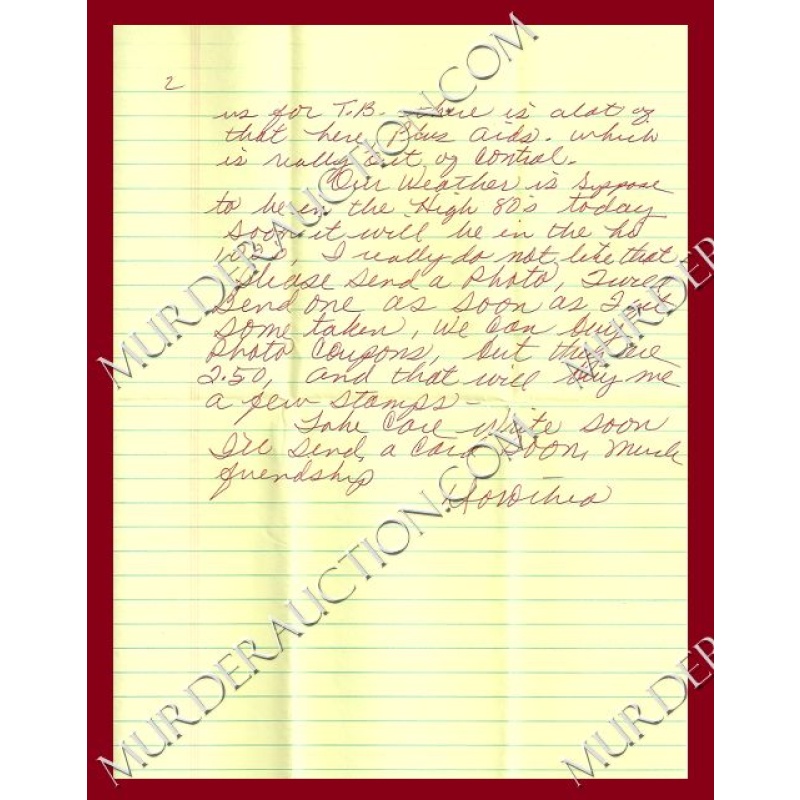 2
us for T.B. there is alot of
that here Plus aids. which
is really out of control.
Our Weather is suppose
to be in the High 80's today
soon it will be in the
I really do not like that
Please send a Photo, I will
send one as soon as I get
some taken, we can buy
Photo Coupons, but they are
2.50, and that will buy me
a few stamps -
Take Care write soon
I'll send a card soon, Much
friendship
Dorothea
MURDERAUCTION.COM
MURDERAUCTION.COM
MURDERAUCTION.COM
MURDER
MURDER